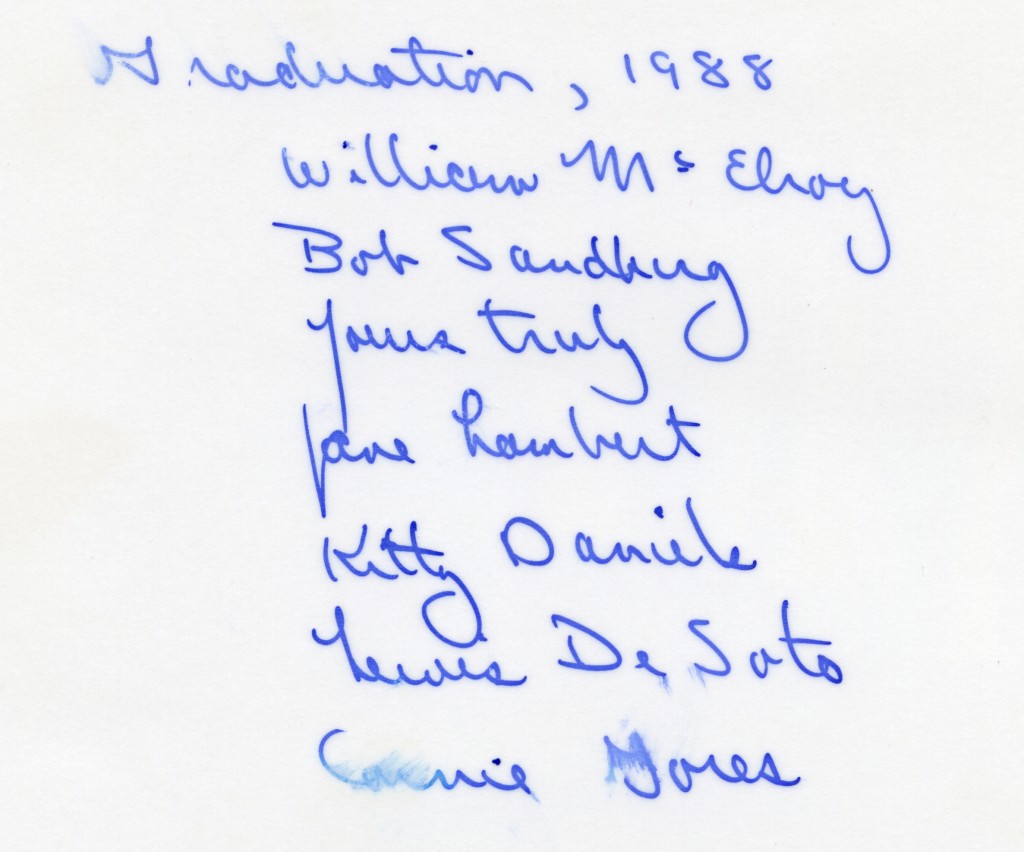 Graduation, 1988
William McElroy
Bob Sandberg
Yours truly
Jane Lambert
Kitty Daniels
Lewis De Soto
Connie